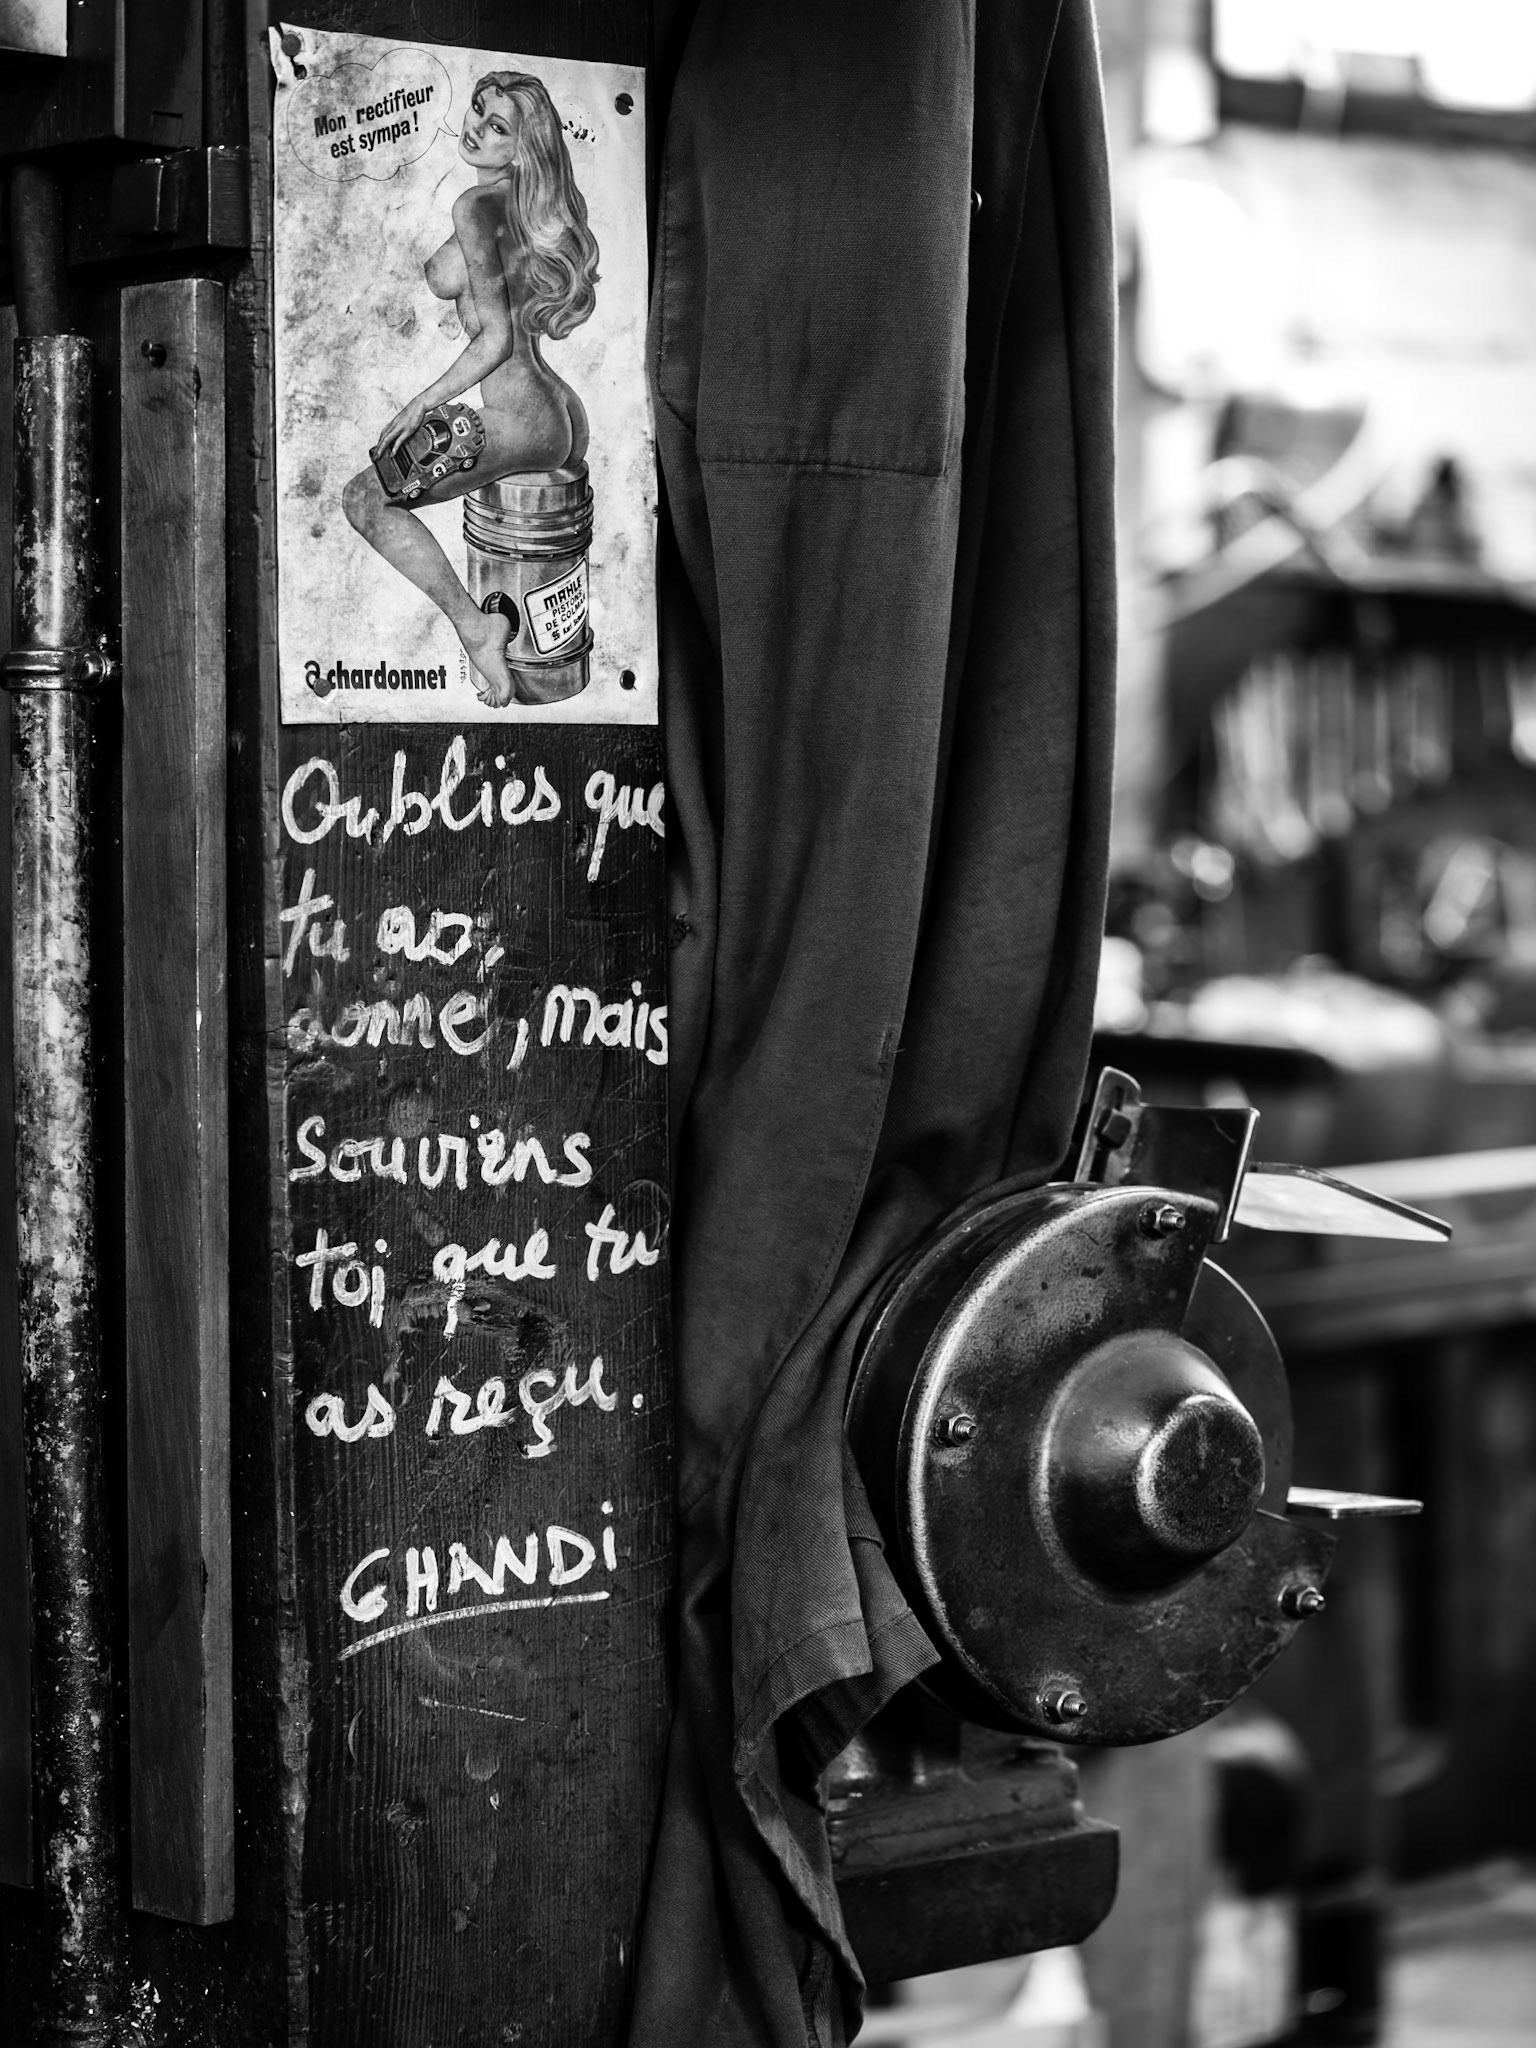 Mon rectifieur
est sympa!
MAHLE
PISTONS
DE COLMAR
chardonnet
Oublies que
tu as,
donné, mais
souviens
toi que tu
as reçu.
GHANDi